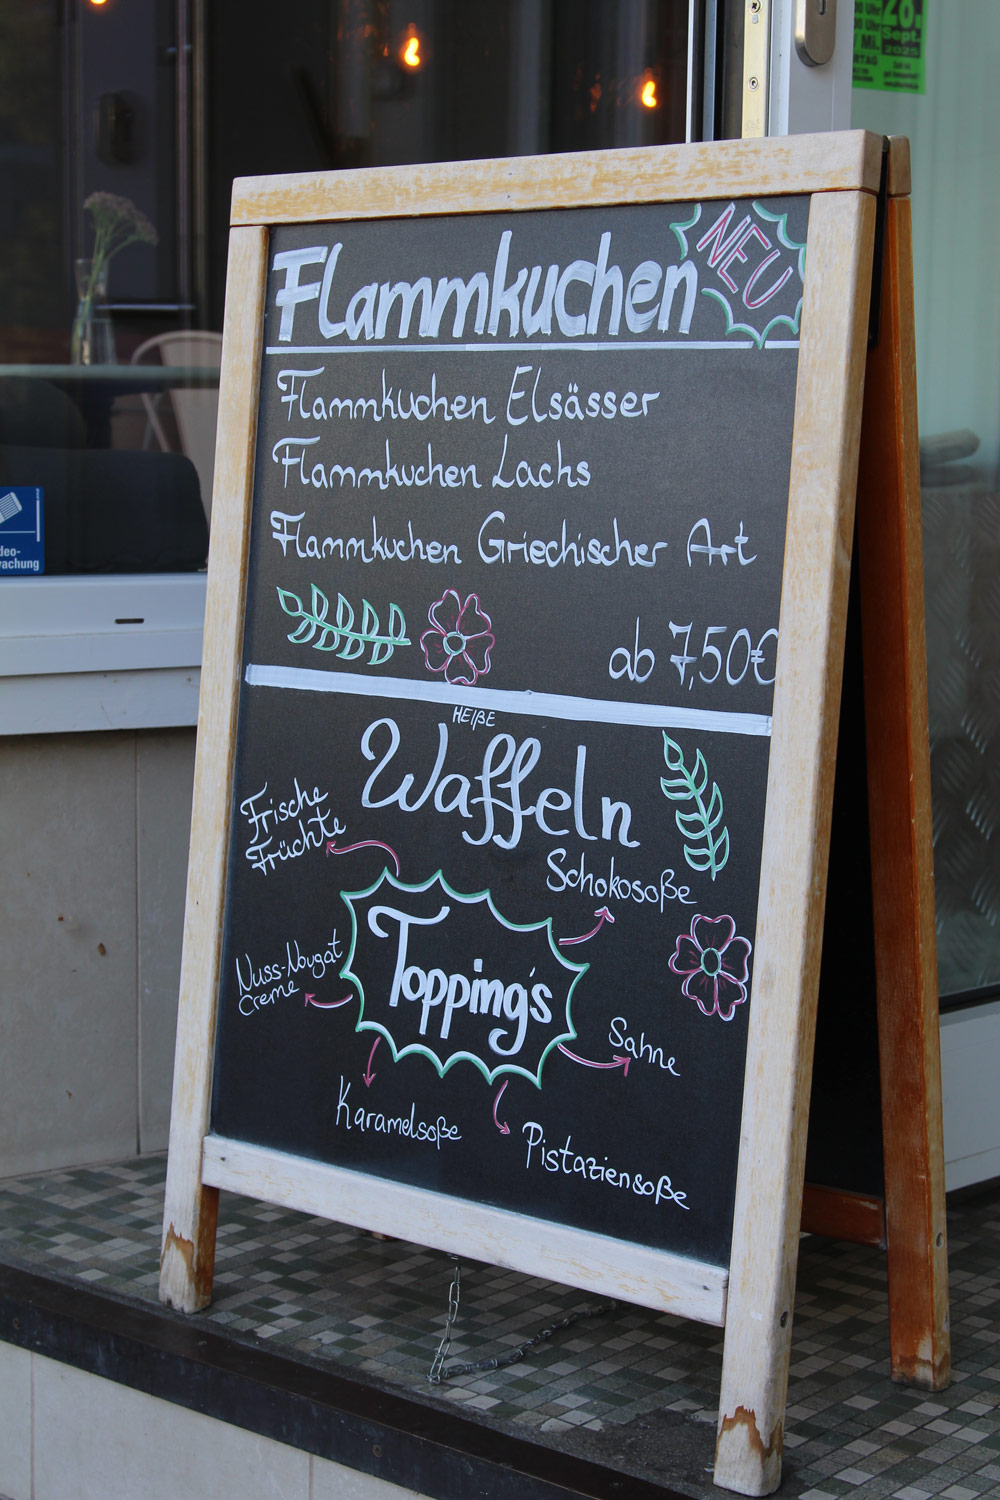 Flammkuchen
NEU
Flammkuchen Elsässer
Flammkuchen Lachs
Flammkuchen Griechischer Art
ab 7,50€
HEIßE
Waffeln
Frische
Früchte
Schokosoße
Nuss-Nougat
Creme
Topping's
Sahne
Karamelsoße
Pistaziensoße
28.
Sept.
2025